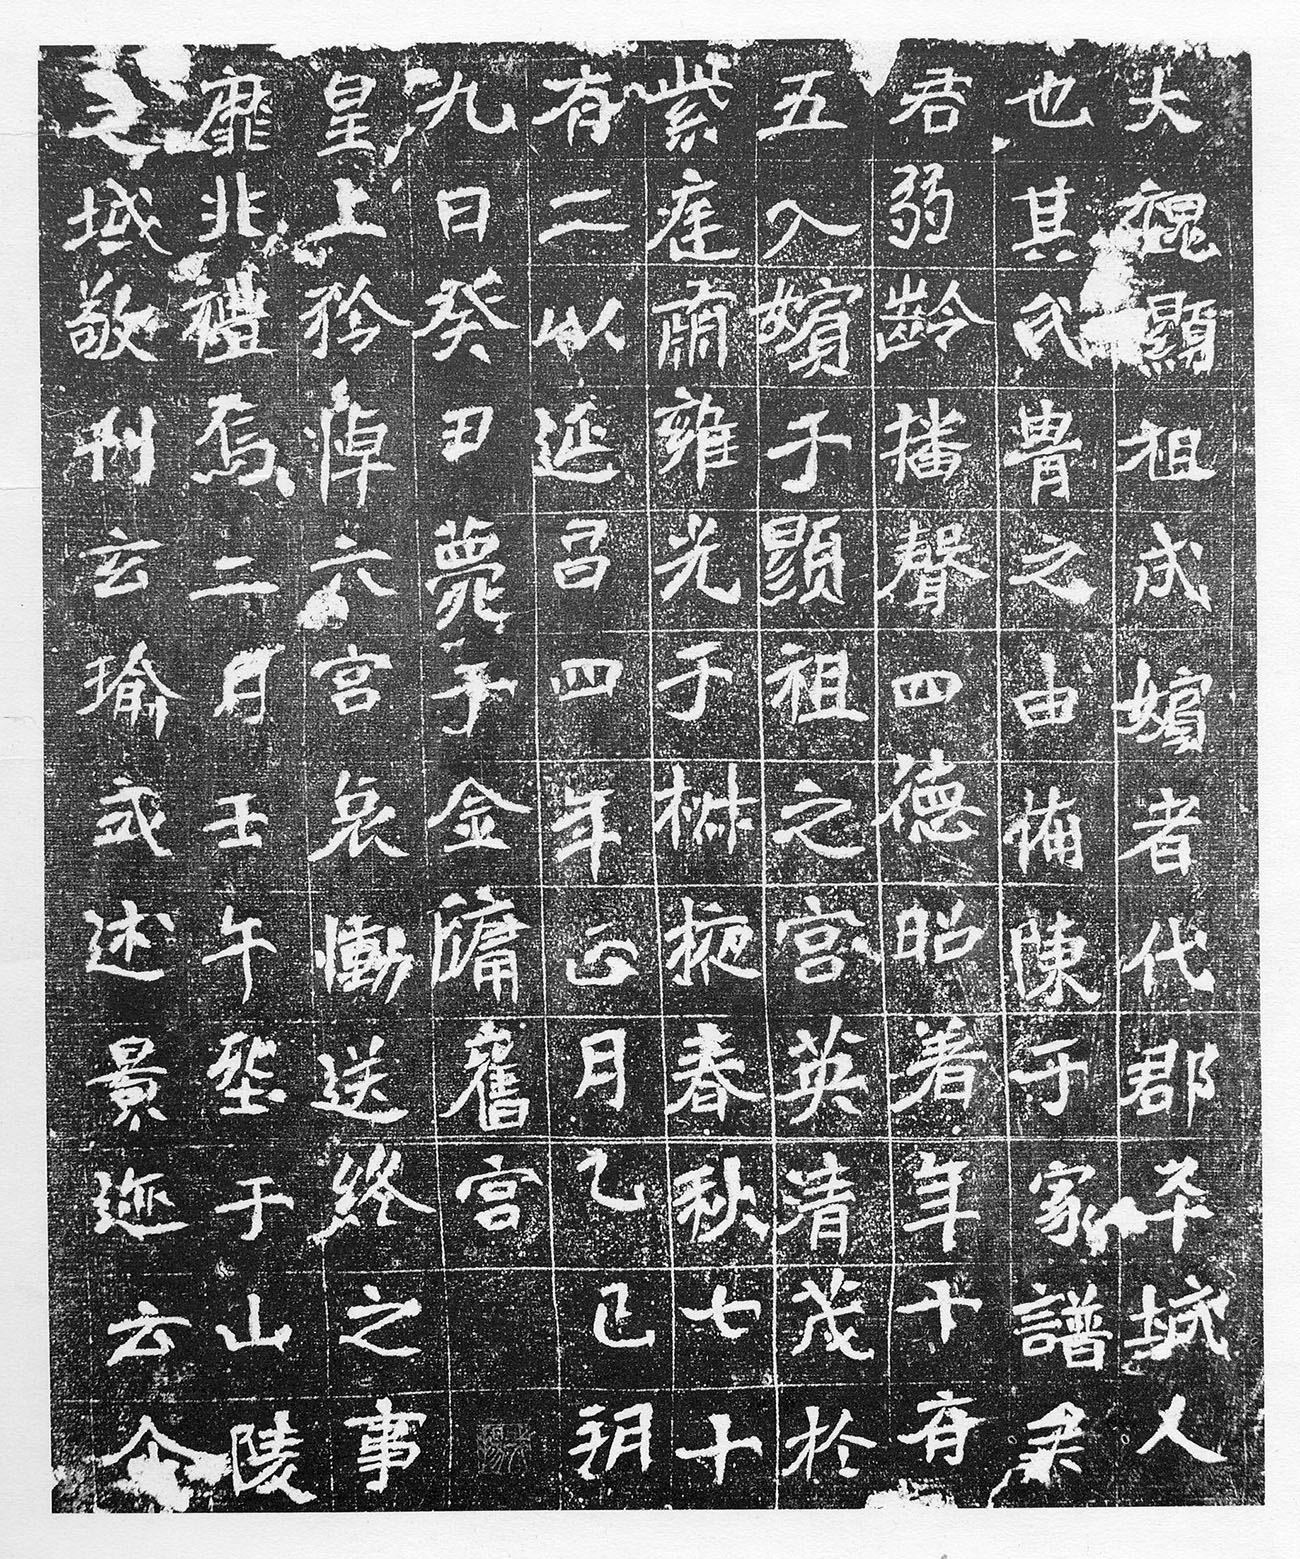 大魏顯祖成嬪者代郡平城人
也其氏胄之由備陳于家譜矣
君弱齡播聲四德昭著年十有
五入嬪于顯祖之宮英清茂於
紫庭肅雍光于椒掖春秋七十
有二以延昌四年正月乙巳朔
九日癸丑薨于金墉舊宮
皇上矜悼六宮哀慟送終之事
靡非禮焉二月壬午塟于山陵
之域敬刊玄瑜式述景迹云尒